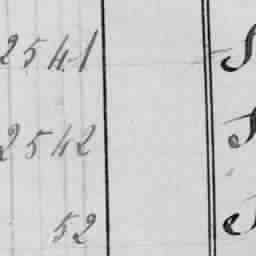 2541
2542
52